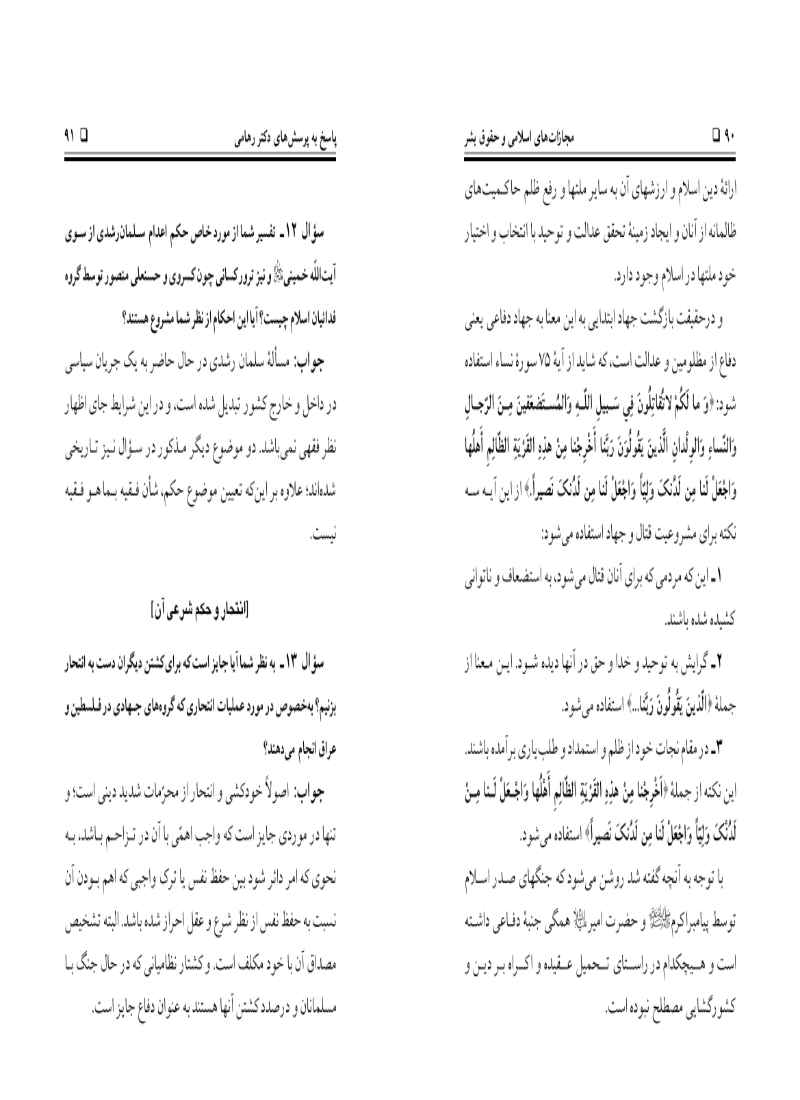 ۹۰ ❑ مجازات‌های اسلامی و حقوق بشر
ارائهٔ دین اسلام و ارزشهای آن به سایر ملتها و رفع ظلم حاکمیت‌های
ظالمانه از آنان و ایجاد زمینهٔ تحقق عدالت و توحید با انتخاب و اختیار
خود ملتها در اسلام وجود دارد.
و درحقیقت بازگشت جهاد ابتدایی به این معنا به جهاد دفاعی یعنی
دفاع از مظلومین و عدالت است، که شاید از آیهٔ ۷۵ سورهٔ نساء استفاده
شود: ﴿وَ ما لَکُمْ لاتُقاتِلُونَ فِي سَبِيلِ اللّٰهِ وَالْمُسْتَضْعَفِينَ مِنَ الرِّجالِ
وَالنِّساءِ وَالْوِلْدانِ الَّذِينَ يَقُولُونَ رَبَّنا أَخْرِجْنا مِنْ هٰذِهِ الْقَرْيَةِ الظّالِمِ أَهْلُها
وَاجْعَلْ لَنا مِن لَدُنْکَ وَلِيّاً وَاجْعَلْ لَنا مِن لَدُنْکَ نَصيراً.﴾ از این آیه سه
نکته برای مشروعیت قتال و جهاد استفاده می‌شود:
۱ـ این که مردمی که برای آنان قتال می‌شود، به استضعاف و ناتوانی
کشیده شده باشند.
۲ـ گرایش به توحید و خدا و حق در آنها دیده شود. این معنا از
جملهٔ ﴿الَّذينَ يَقُولُونَ رَبَّنا...﴾ استفاده می‌شود.
۳ـ در مقام نجات خود از ظلم و استمداد و طلب‌یاری برآمده باشند.
این نکته از جملهٔ ﴿اَخْرِجْنا مِنْ هٰذِهِ الْقَرْيَةِ الظّالِمِ أَهْلُها وَاجْعَلْ لَنا مِنْ
لَدُنْکَ وَلِيّاً وَاجْعَلْ لَنا مِن لَدُنْکَ نَصيراً﴾ استفاده می‌شود.
با توجه به آنچه گفته شد روشن می‌شود که جنگهای صدر اسلام
توسط پیامبراکرمﷺ و حضرت امیر(ع) همگی جنبهٔ دفاعی داشته
است و هیچکدام در راستای تحمیل عقیده و اکراه بر دین و
کشورگشایی مصطلح نبوده است.
پاسخ به پرسش‌های دکتر رهامی ❑ ۹۱
سؤال ۱۲ـ تفسیر شما از مورد خاص حکم اعدام سلمان‌رشدی از سوی
آیت‌الله خمینی و نیز ترور کسانی چون کسروی و حسنعلی منصور توسط گروه
فدائیان اسلام چیست؟ آیا این احکام از نظر شما مشروع هستند؟
جواب: مسألهٔ سلمان رشدی در حال حاضر به یک جریان سیاسی
در داخل و خارج کشور تبدیل شده است، و در این شرایط جای اظهار
نظر فقهی نمی‌باشد. دو موضوع دیگر مذکور در سؤال نیز تاریخی
شده‌اند؛ علاوه بر این‌که تعیین موضوع حکم، شأن فقیه بماهو فقیه
نیست.
[انتحار و حکم شرعی آن]
سؤال ۱۳ـ به نظر شما آیا جایز است که برای کشتن دیگران دست به انتحار
بزنیم؟ به‌خصوص در مورد عملیات انتحاری که گروه‌های جهادی در فلسطین و
عراق انجام می‌دهند؟
جواب: اصولاً خودکشی و انتحار از محرّمات شدید دینی است؛ و
تنها در موردی جایز است که واجب اهمّی با آن در تزاحم باشد، به
نحوی که امر دائر شود بین حفظ نفس یا ترک واجبی که اهم بودن آن
نسبت به حفظ نفس از نظر شرع و عقل احراز شده باشد. البته تشخیص
مصداق آن با خود مکلف است. و کشتار نظامیانی که در حال جنگ با
مسلمانان و درصدد کشتن آنها هستند به عنوان دفاع جایز است.